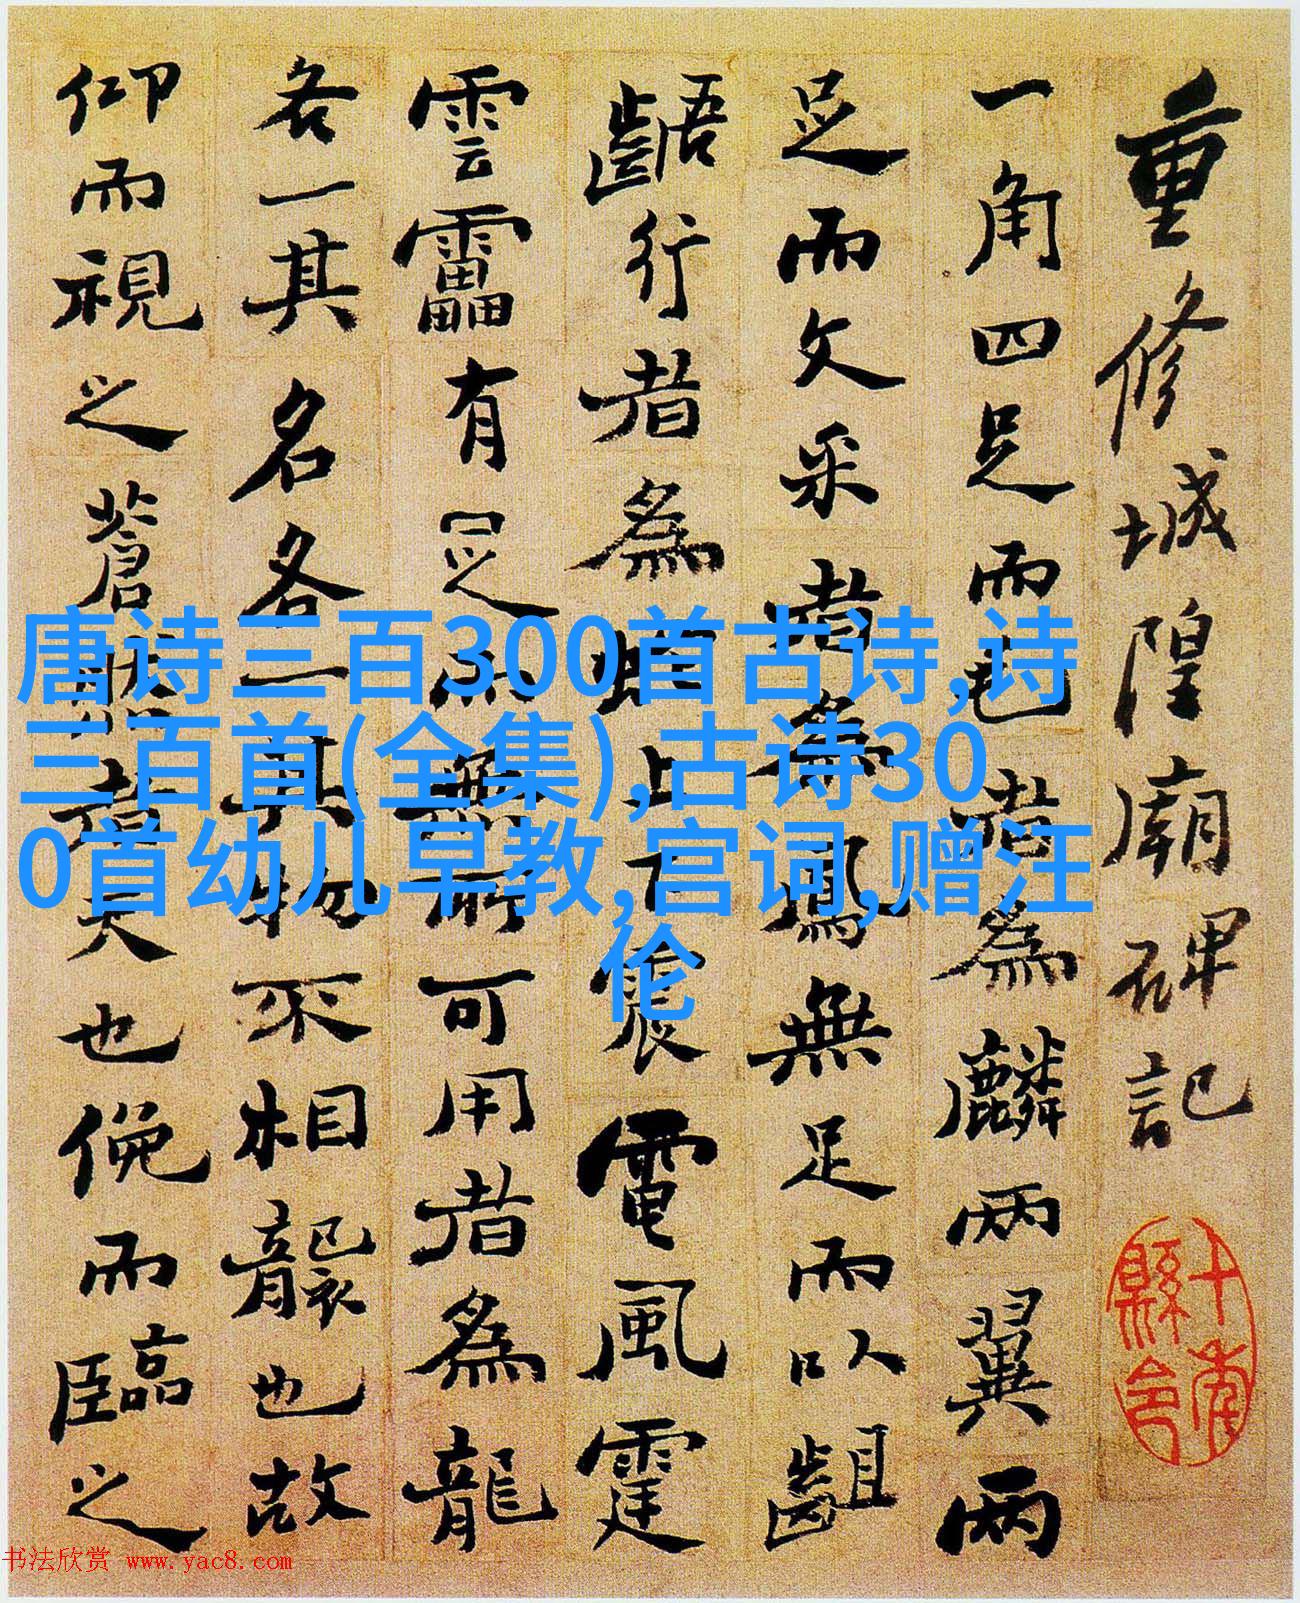 重修城隍廟碑記
一角四足而毛者為麟兩翼兩
足而文采者為鳳無足而以齟
齬行者為蛇上下震電風霆
雲靁有足而無所可用者為龍
各一其名各一其物不相襲也故
仰而視之蒼然者天也俛而臨之
唐诗三百300首古诗,诗
三百首(全集),古诗30
0首幼儿早教,宫词,赠汪
伦
书法欣赏 www.yac8.com